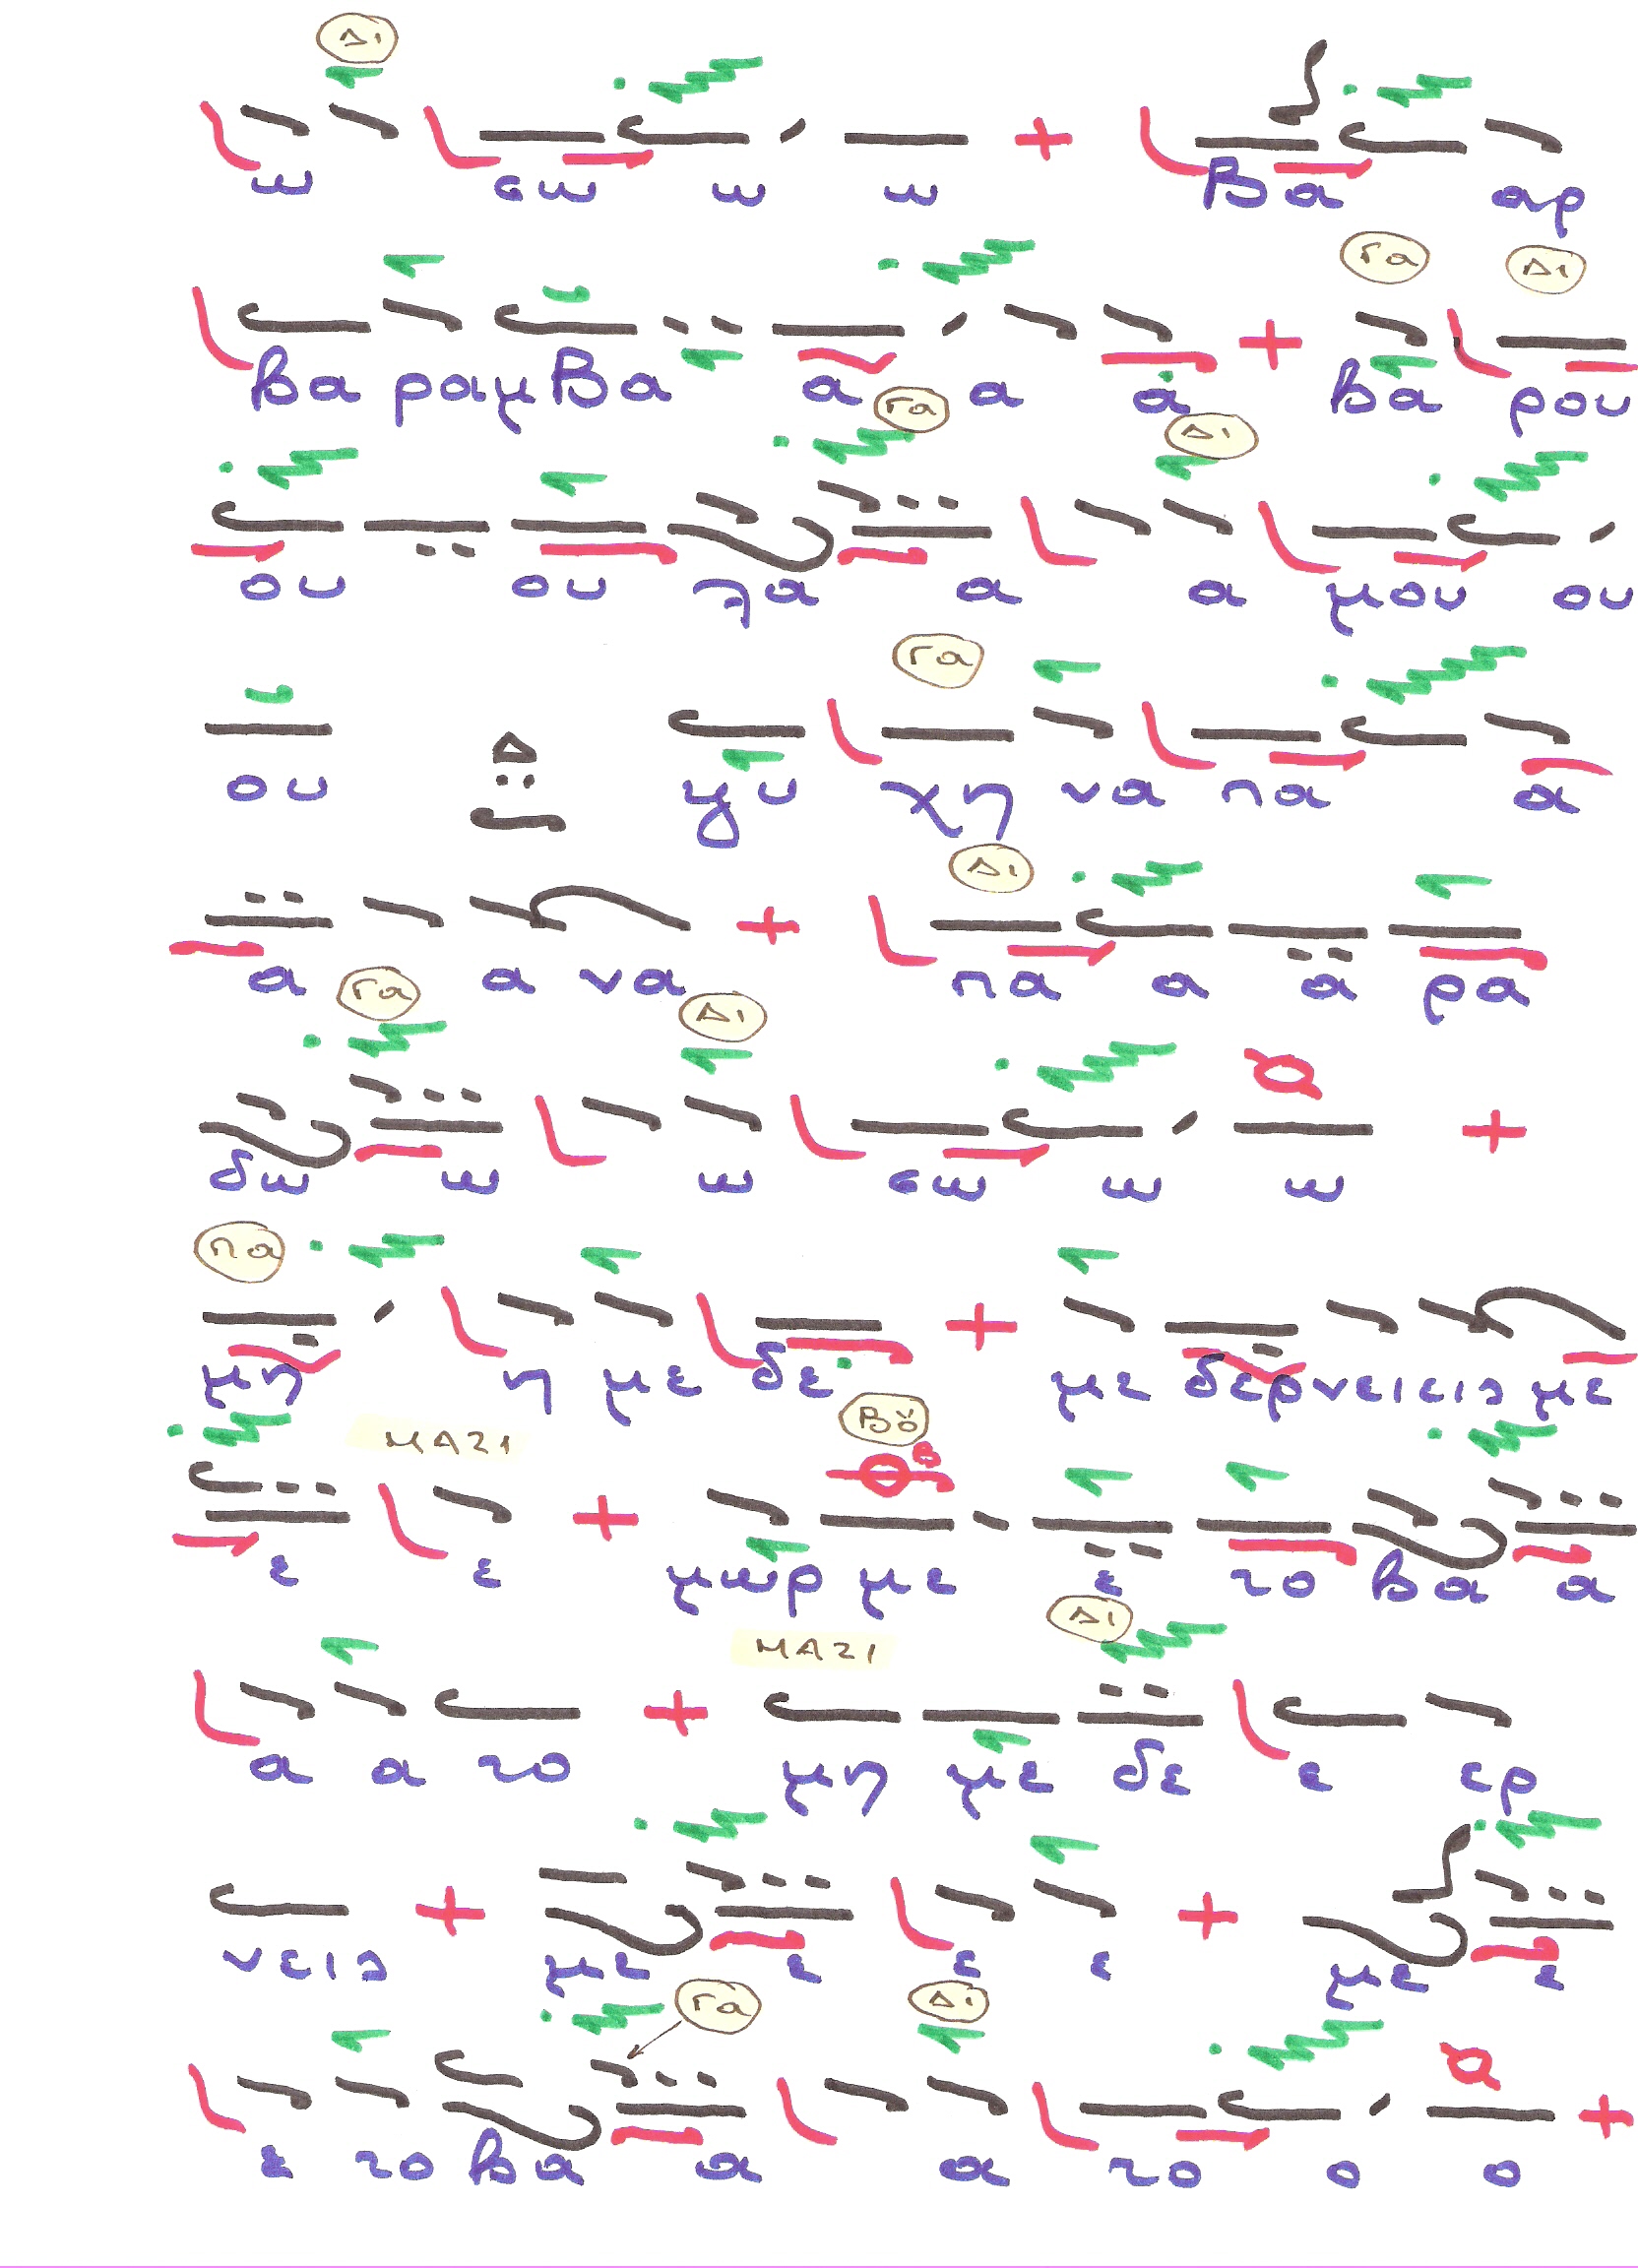 Δι
ω σω ω ω Βα αρ
Γα Δι
Βα ραμ Βα α α α Βα ρου
Γα Δι
ου ου λα α α μου ου
Γα
ου Δ ψυ χη να πα α
Δι
α α να πα α α ρα
Γα Δι
δω ω ω σω ω ω
πα
μη η με δε με δερνειεις με
ΜΑΖΙ Βου
ε ε μωρ με ε το βα α
ΜΑΖΙ Δι
α α το μη με δε ε ερ
νεις με ε ε ε με ε
Γα Δι
ε το βα α α το ο ο